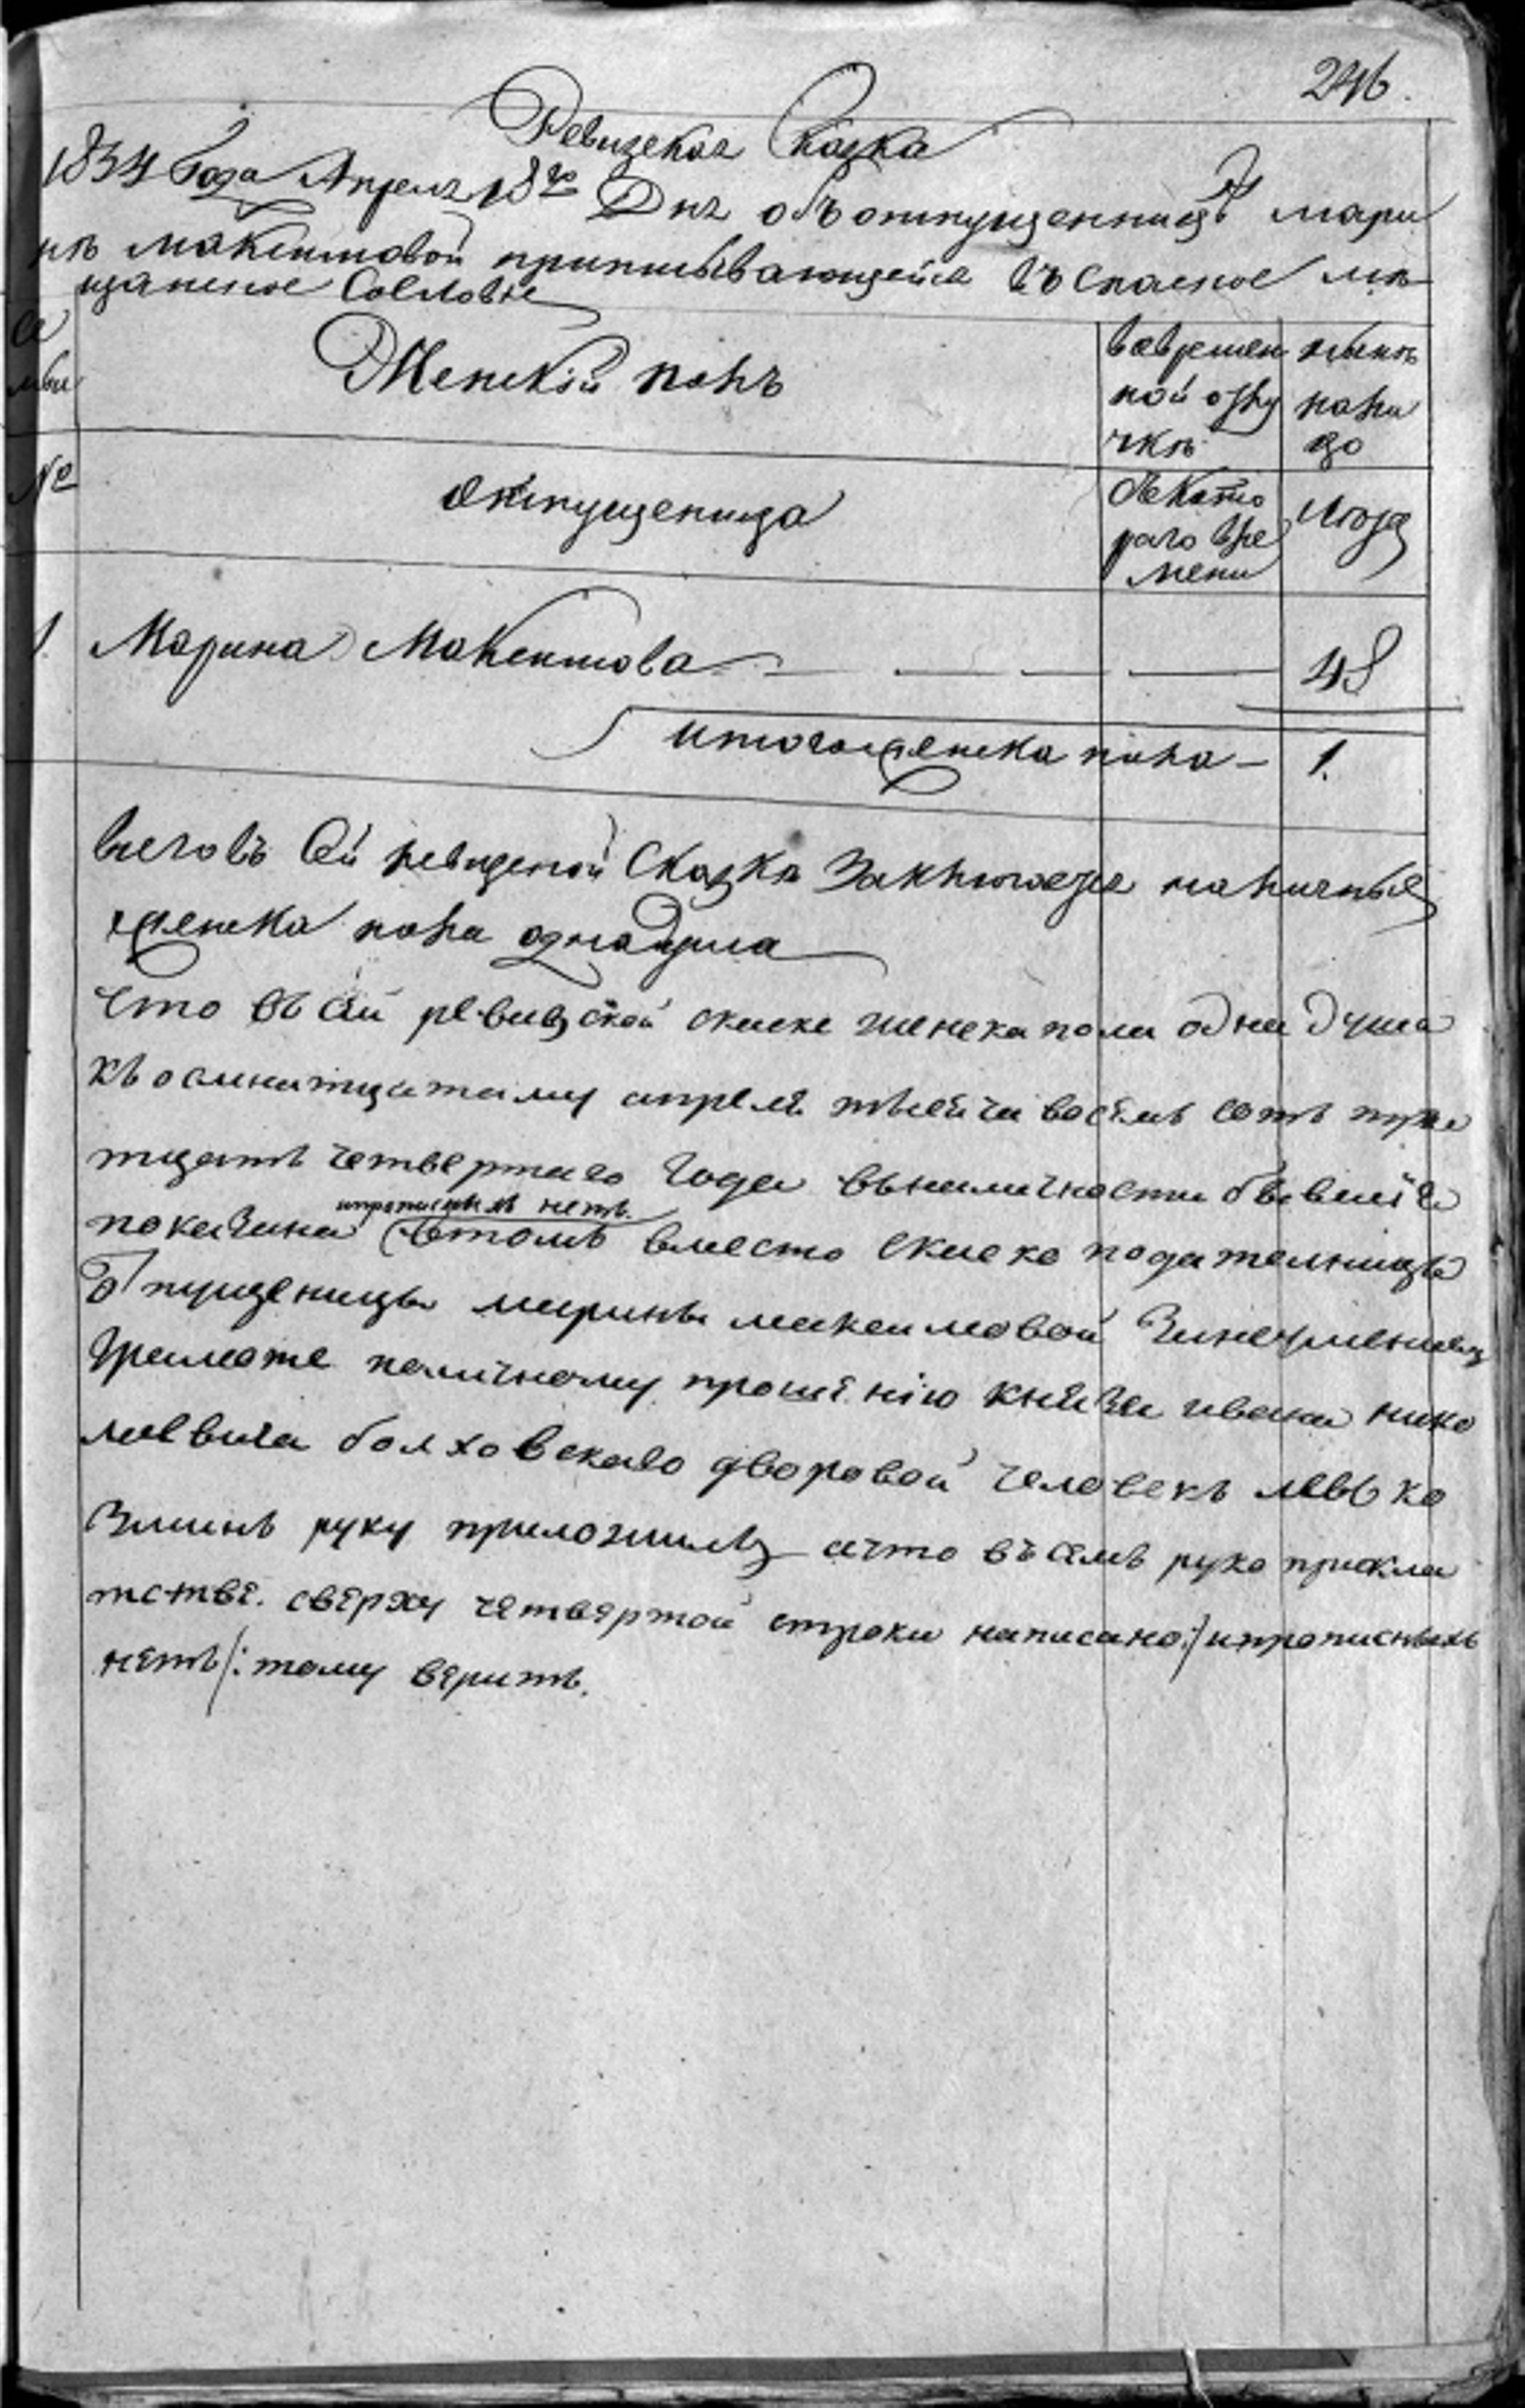 246.
Ревизская Сказка
1834 Года Апреля 18го Дня объ отпущенницѣ мари
нѣ максимовой приписывающейся въ спаское мѣ
щанское Сословіе
Се
мьи
Женскій полъ
вовремен
ной отлу
чкѣ
нынѣ
нали
цо
№
отпущеница
съ Като
раго вре
мени
лѣта
1. Марина Максимова
48
итого женска пола – 1.
всего въ Сей ревизской Сказкѣ Заключается наличныхъ
женска пола одна душа
что въ сей ревизской скаске женска пола одна душа
къ осмнатцатаму апреля тысеча восемь сотъ тритца
тцать четвертаго года въ наличности бывшая
показана
ипрописныхъ нетъ.
втомъ вместо скаско подательницы
Отпущеницы марины максимовой Занеуменіемъ
Грамоте поличному прошенію князя ивана нико
лаевича болховскаго дворовой человекъ левъ ко
Зминъ руку приложилъ ачто въ семъ руко прикла
тстве. сверху четвертой строки написано:/ ипрописныхъ
нетъ/: тому верить.